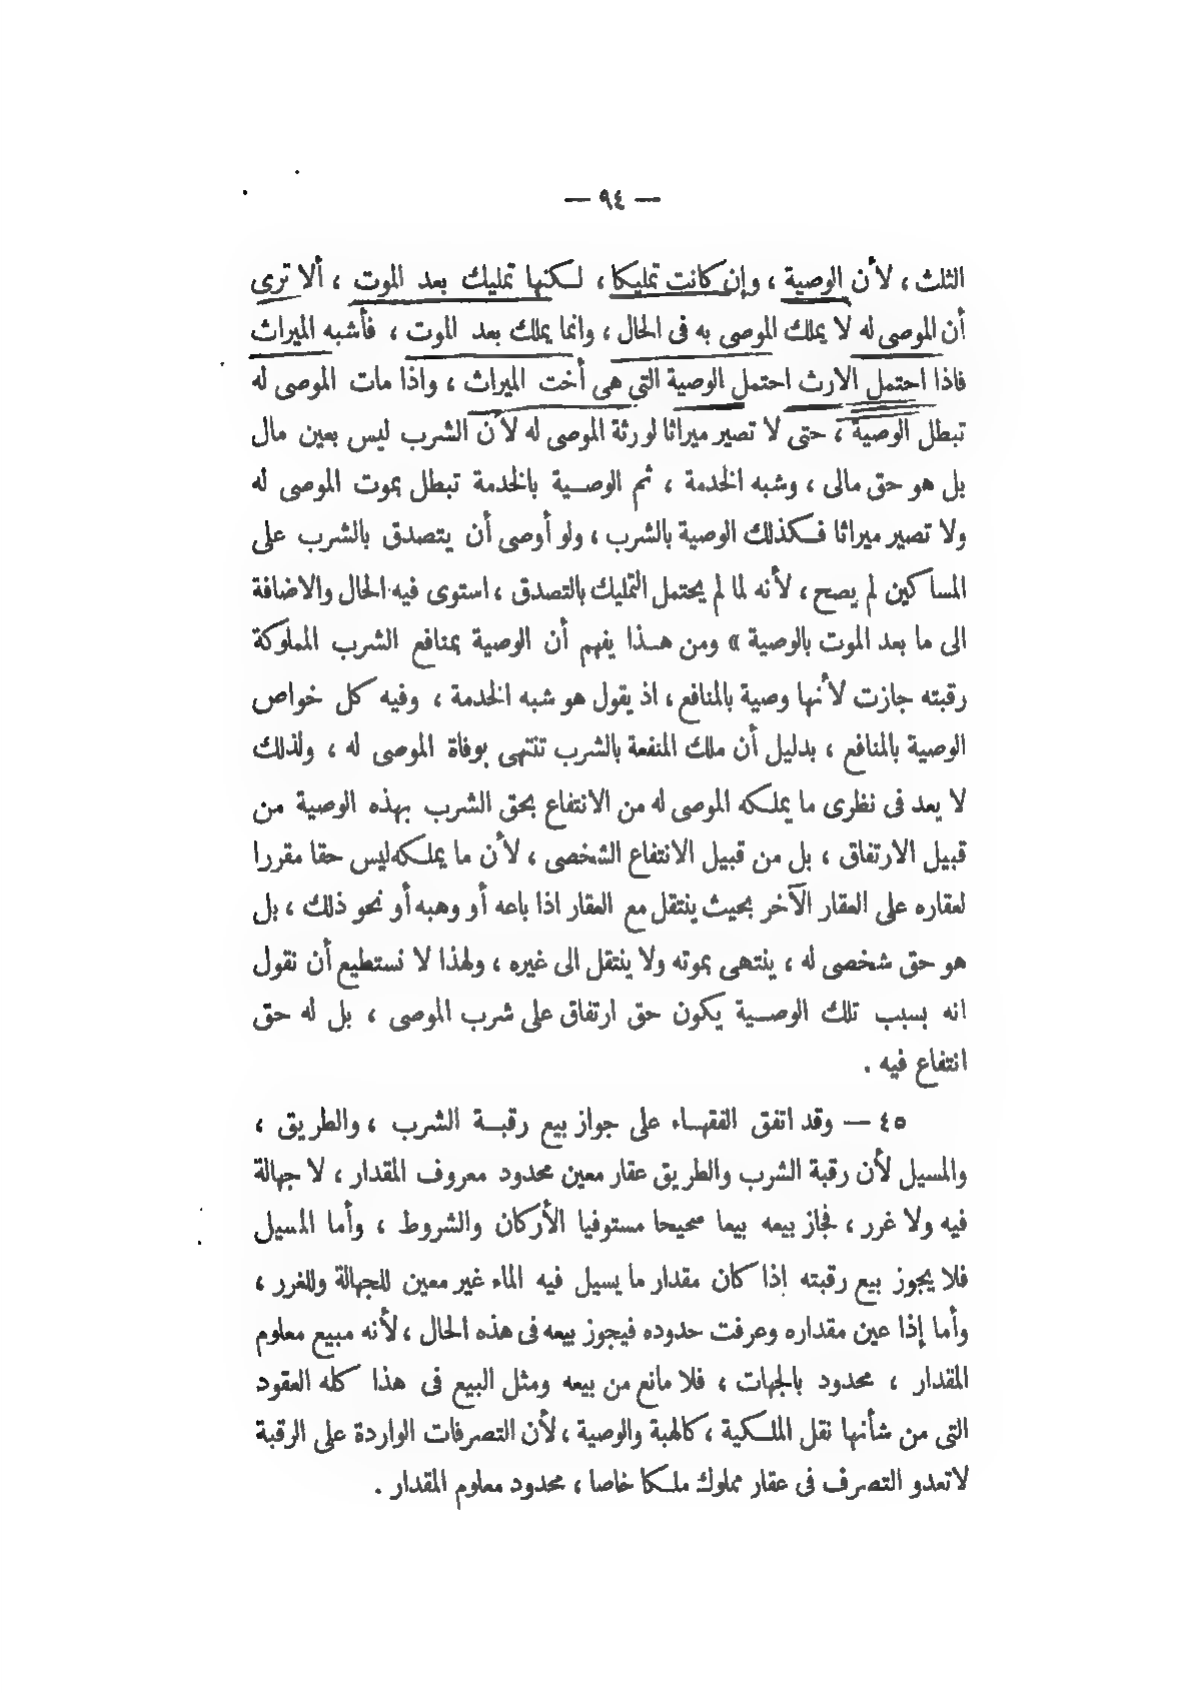 — ٩٤ —
الثلث ، لأن الوصية ، وإن كانت تمليكا ، لكنها تمليك بعد الموت ، ألا ترى
أن الموصى له لا يملك الموصى به فى الحال ، وانما يملك بعد الموت ، فأشبه الميراث
فاذا احتمل الارث احتمل الوصية التى هى أخت الميراث ، واذا مات الموصى له
تبطل الوصية ، حتى لا تصير ميراثا لورثة الموصى له لأن الشرب ليس بعين مال
بل هو حق مالى ، وشبه الخدمة ، ثم الوصية بالخدمة تبطل بموت الموصى له
ولا تصير ميراثا فكذلك الوصية بالشرب ، ولو أوصى أن يتصدق بالشرب على
المساكين لم يصح ، لأنه لما لم يحتمل التمليك بالتصدق ، استوى فيه الحال والاضافة
الى ما بعد الموت بالوصية » ومن هذا يفهم أن الوصية بمنافع الشرب المملوكة
رقبته جازت لأنها وصية بالمنافع ، اذ يقول هو شبه الخدمة ، وفيه كل خواص
الوصية بالمنافع ، بدليل أن ملك المنفعة بالشرب تنتهى بوفاة الموصى له ، ولذلك
لا يعد فى نظرى ما يملكه الموصى له من الانتفاع بحق الشرب بهذه الوصية من
قبيل الارتفاق ، بل من قبيل الانتفاع الشخصى ، لأن ما يملكه ليس حقا مقررا
لعقاره على العقار الآخر بحيث ينتقل مع العقار اذا باعه أو وهبه أو نحو ذلك ، بل
هو حق شخصى له ، ينتهى بموته ولا ينتقل الى غيره ، ولهذا لا نستطيع أن نقول
انه بسبب تلك الوصية يكون حق ارتفاق على شرب الموصى ، بل له حق
انتفاع فيه .
٤٥ — وقد اتفق الفقهاء على جواز بيع رقبة الشرب ، والطريق ،
والمسيل لأن رقبة الشرب والطريق عقار معين محدود معروف المقدار ، لا جهالة
فيه ولا غرر ، فجاز بيعه بيعا صحيحا مستوفيا الأركان والشروط ، وأما المسيل
فلا يجوز بيع رقبته إذا كان مقدار ما يسيل فيه الماء غير معين للجهالة وللغرر ،
وأما إذا عين مقداره وعرفت حدوده فيجوز بيعه فى هذه الحال ، لأنه مبيع معلوم
المقدار ، محدود بالجهات ، فلا مانع من بيعه ومثل البيع فى هذا كله العقود
التى من شأنها نقل الملكية ، كالهبة والوصية ، لأن التصرفات الواردة على الرقبة
لا تعدو التصرف فى عقار مملوك ملكا خاصا ، محدود معلوم المقدار .